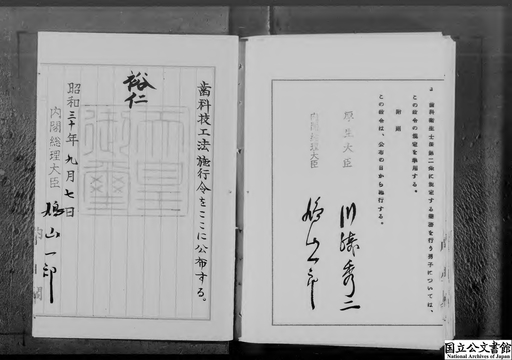 歯科技工法施行令をここに公布する。
裕仁
天皇御璽
昭和三十年九月七日
内閣総理大臣 鳩山一郎
2 歯科衛生士法第二条に規定する業務を行う男子については、
この政令の規定を準用する。
附則
この政令は、公布の日から施行する。
厚生大臣 川崎秀二
内閣総理大臣 鳩山一郎
国立公文書館
National Archives of Japan